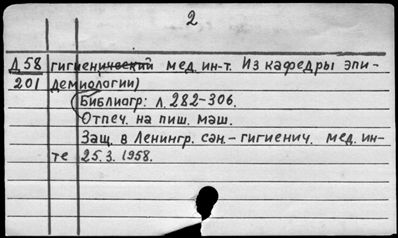 2
Д 58 гигиенический мед. ин-т. Из кафедры эпи-
201 демиологии)
Библиогр: л. 282-306.
Отпеч. на пиш. маш.
Защ. в Ленингр. сан.-гигиенич. мед. ин-
те 25.3.1958.